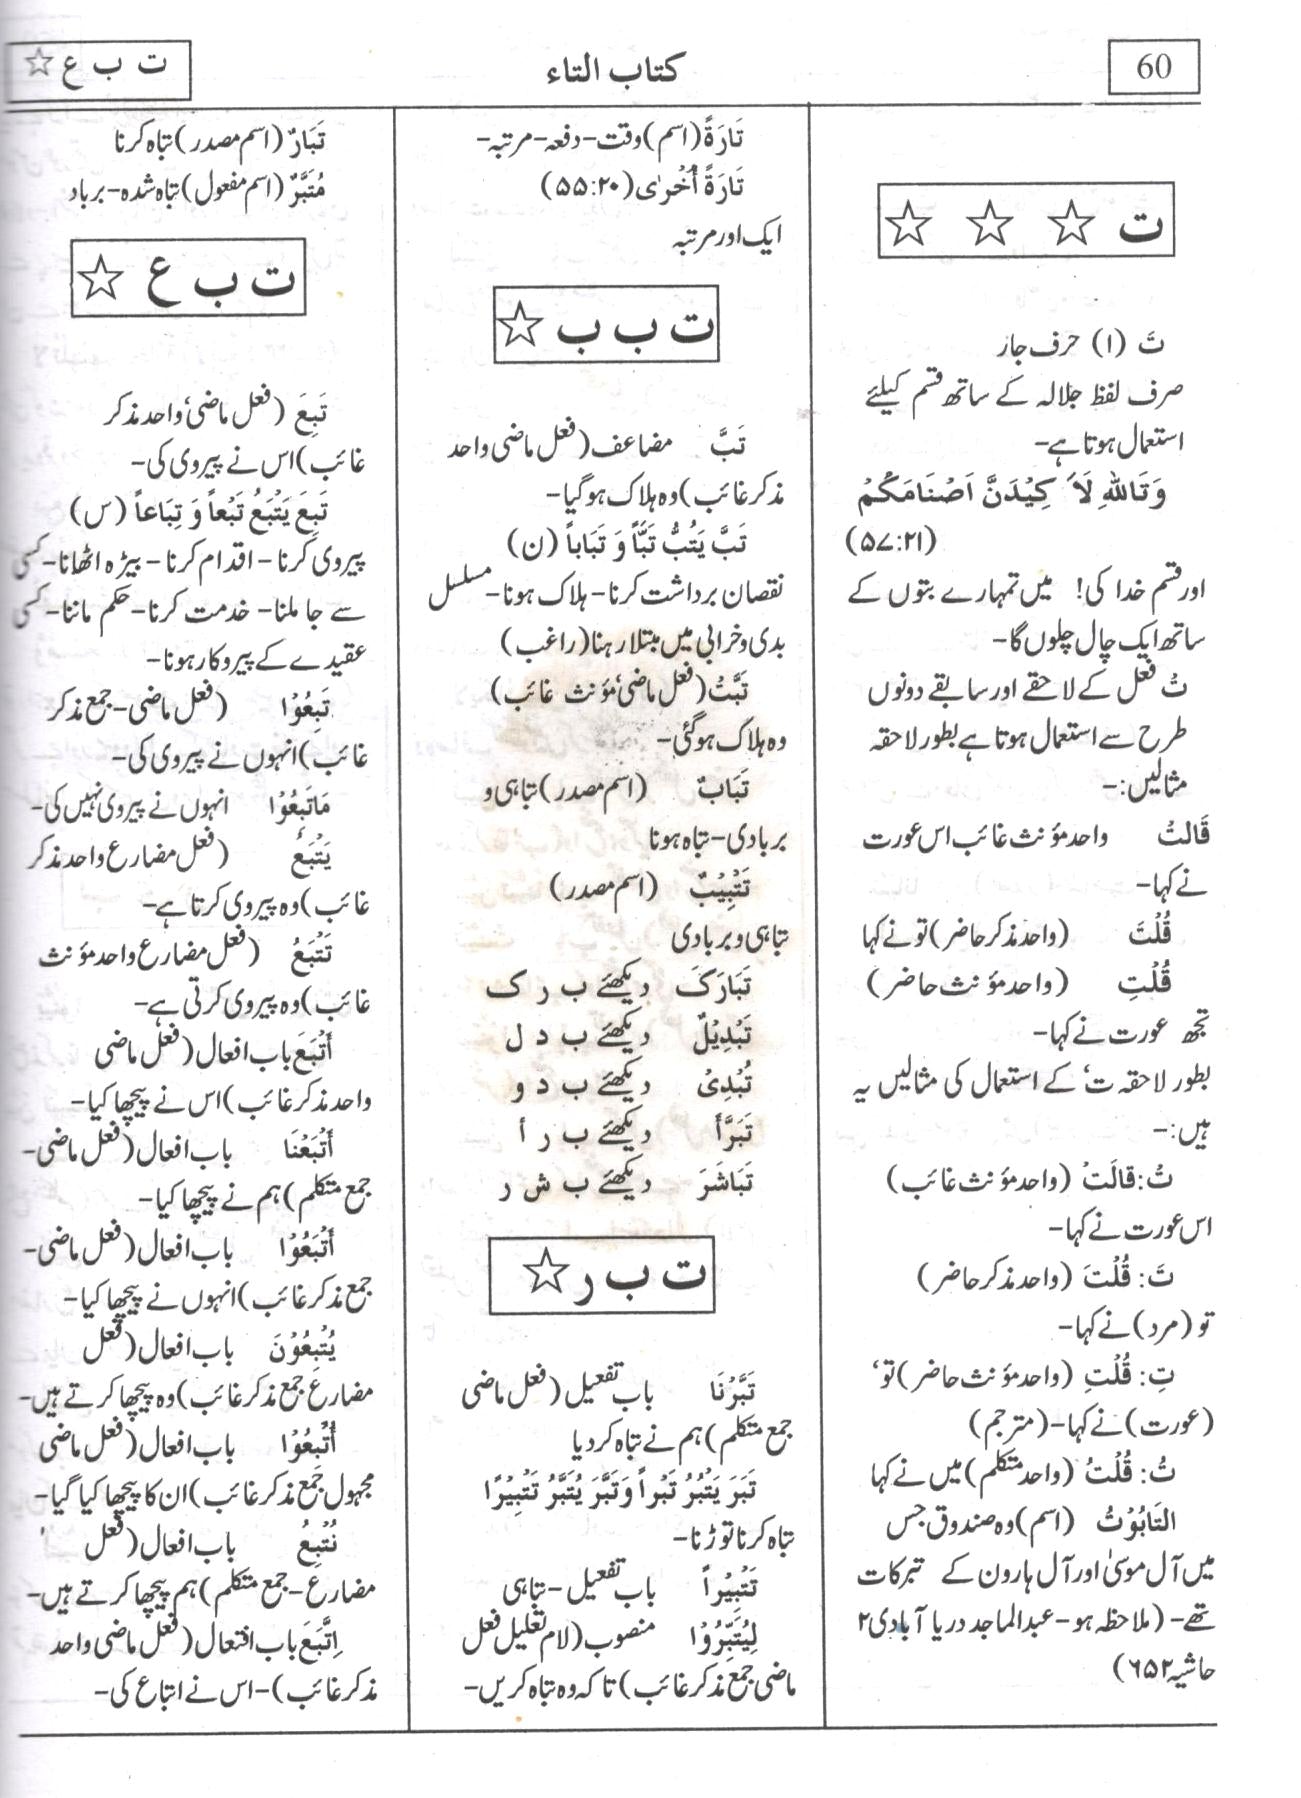 60
کتاب التاء
ت ب ع ☆
ت ☆ ☆ ☆
تَ (۱) حرف جار
صرف لفظ جلالہ کے ساتھ قسم کیلئے
استعمال ہوتا ہے-
وَتَاللهِ لَاَ كِيْدَنَّ اَصْنَامَكُمْ
(۵۷:۲۱)
اور قسم خدا کی! میں تمہارے بتوں کے
ساتھ ایک چال چلوں گا-
تُ فعل کے لاحقے اور سابقے دونوں
طرح سے استعمال ہوتا ہے بطور لاحقہ
مثالیں:-
قَالَتْ واحد مؤنث غائب اس عورت
نے کہا-
قُلْتَ (واحد مذکر حاضر) تو نے کہا
قُلْتِ (واحد مؤنث حاضر)
تجھ عورت نے کہا-
بطور لاحقہ ت' کے استعمال کی مثالیں یہ
ہیں:-
تْ: قَالَتْ (واحد مؤنث غائب)
اس عورت نے کہا-
تَ: قُلْتَ (واحد مذکر حاضر)
تو (مرد) نے کہا-
تِ: قُلْتِ (واحد مؤنث حاضر) تو'
(عورت) نے کہا-(مترجم)
تُ: قُلْتُ (واحد متکلم) میں نے کہا
التَابُوْتُ (اسم) وہ صندوق جس
میں آل موسیٰ اور آل ہارون کے تبرکات
تھے- (ملاحظہ ہو- عبدالماجد دریا آبادی ۲
حاشیہ ۶۵۲)
تَارَةً (اسم) وقت- دفعہ- مرتبہ-
تَارَةً أُخْرٰى (۵۵:۲۰)
ایک اور مرتبہ
ت ب ب ☆
تَبَّ مضاعف (فعل ماضی واحد
مذکر غائب) وہ ہلاک ہو گیا-
تَبَّ يَتُبُّ تَبًّا وَ تَبَاباً (ن)
نقصان برداشت کرنا- ہلاک ہونا- مسلسل
بدی و خرابی میں مبتلا رہنا (راغب)
تَبَّتْ (فعل ماضی' مؤنث غائب)
وہ ہلاک ہو گئی-
تَبَابٌ (اسم مصدر) تباہی و
بربادی- تباہ ہونا
تَتْبِيْبٌ (اسم مصدر)
تباہی و بربادی
تَبَارَكَ دیکھئے ب ر ک
تَبْدِيْلٌ دیکھئے ب د ل
تُبْدِىْ دیکھئے ب د و
تَبَرَّأَ دیکھئے ب ر أ
تَبَاشَرَ دیکھئے ب ش ر
ت ب ر ☆
تَبَّرْنَا باب تفعیل (فعل ماضی
جمع متکلم) ہم نے تباہ کر دیا
تَبَرَ يَتْبُرُ تَبْراً وَتَبَّرَ يُتَبَّرُ تَتْبِيْرًا
تباہ کرنا توڑنا-
تَتْبِيْراً باب تفعیل- تباہی
لِيُتَبِّرُوْا منصوب (لام تعلیل فعل
ماضی جمع مذکر غائب) تا کہ وہ تباہ کریں-
تَبَارٌ (اسم مصدر) تباہ کرنا
مُتَبَّرٌ (اسم مفعول) تباہ شدہ- برباد
ت ب ع ☆
تَبِعَ (فعل ماضی' واحد مذکر
غائب) اس نے پیروی کی-
تَبِعَ يَتْبَعُ تَبْعاً وَ تِبَاعاً (س)
پیروی کرنا- اقدام کرنا- بیڑہ اٹھانا- کسی
سے جا ملنا- خدمت کرنا- حکم ماننا- کسی
عقیدے کے پیروکار ہونا-
تَبِعُوْا (فعل ماضی- جمع مذکر
غائب) انہوں نے پیروی کی-
مَاتَبِعُوْا انہوں نے پیروی نہیں کی-
يَتْبَعُ (فعل مضارع واحد مذکر
غائب) وہ پیروی کرتا ہے-
تَتْبَعُ (فعل مضارع واحد مؤنث
غائب) وہ پیروی کرتی ہے-
أَتْبَعَ باب افعال (فعل ماضی
واحد مذکر غائب) اس نے پیچھا کیا-
أَتْبَعْنَا باب افعال (فعل ماضی-
جمع متکلم) ہم نے پیچھا کیا-
أَتْبَعُوْا باب افعال (فعل ماضی-
جمع مذکر غائب) انہوں نے پیچھا کیا-
يُتْبِعُوْنَ باب افعال (فعل
مضارع جمع مذکر غائب) وہ پیچھا کرتے ہیں-
أُتْبِعُوْا باب افعال (فعل ماضی
مجہول جمع مذکر غائب) ان کا پیچھا کیا گیا-
نُتْبِعُ باب افعال (فعل
مضارع- جمع متکلم) ہم پیچھا کرتے ہیں-
اِتَّبَعَ باب افتعال (فعل ماضی واحد
مذکر غائب)- اس نے اتباع کی-